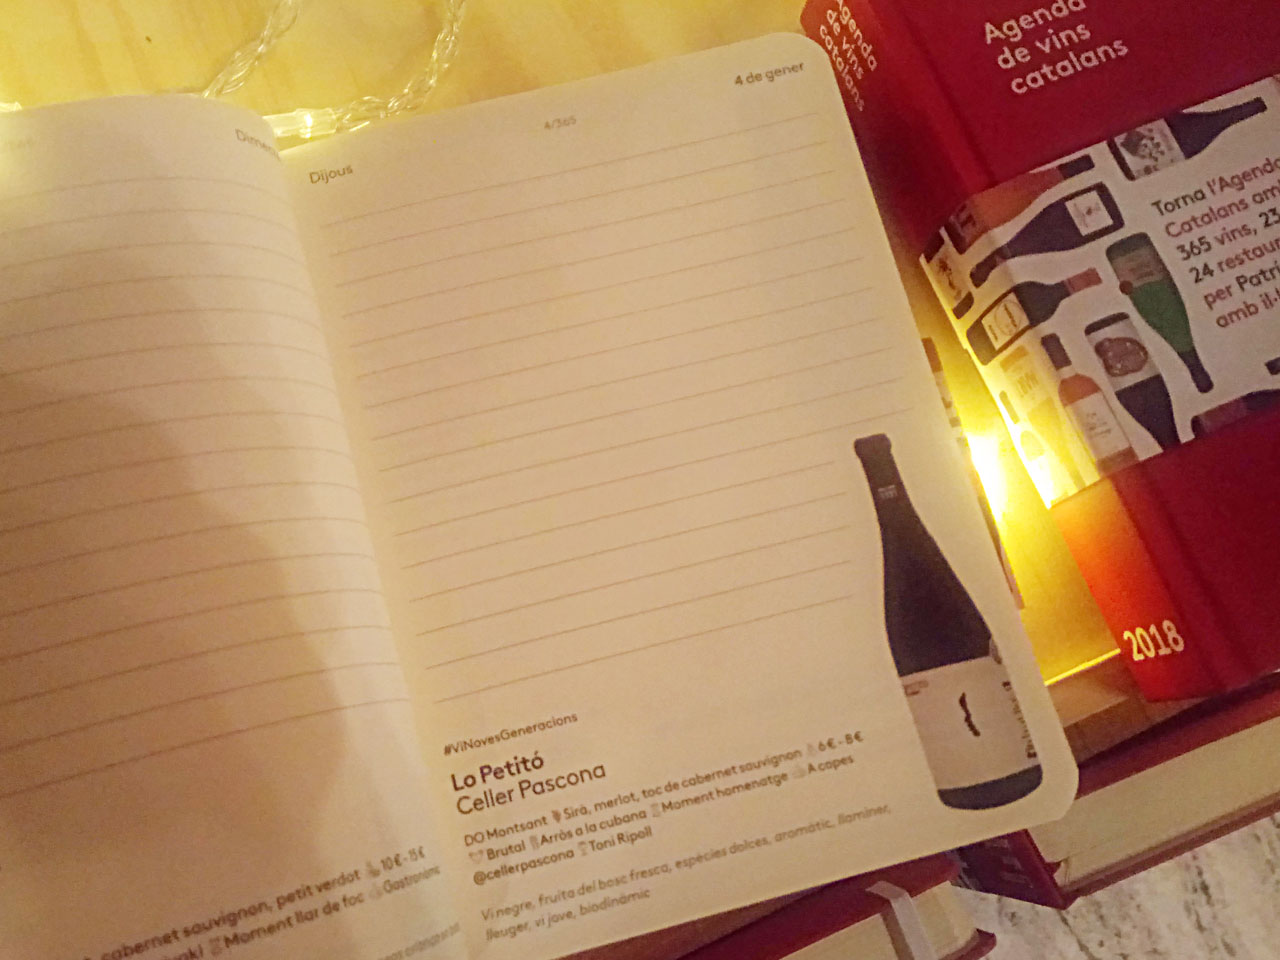 Dijous
4/365
4 de gener
#ViNovesGeneracions
Lo Petitó
Celler Pascona
DO Montsant Sirà, merlot, toc de cabernet sauvignon 6€-8€
Brutal Arròs a la cubana Moment homenatge A copes
@cellerpascona Toni Ripoll
Vi negre, fruita del bosc fresca, espècies dolces, aromàtic, llaminer,
lleuger, vi jove, biodinàmic
cabernet sauvignon, petit verdot 10€-15€
Moment llar de foc Gastronòmic
Agenda
de vins
catalans
Agenda
de vins
catalans
Torna l'Agenda
Catalans amb
365 vins, 23
24 restaur
per Patri
amb il·
2018